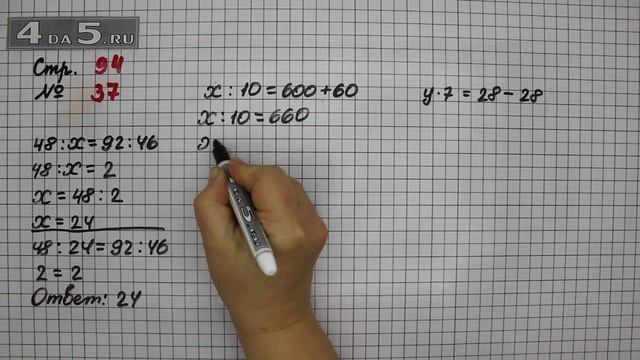 4 DA 5.RU
Стр. 94
№ 37
48 : x = 92 : 46
48 : x = 2
x = 48 : 2
x = 24
48 : 24 = 92 : 46
2 = 2
Ответ: 24
x : 10 = 600 + 60
x : 10 = 660
y · 7 = 28 - 28